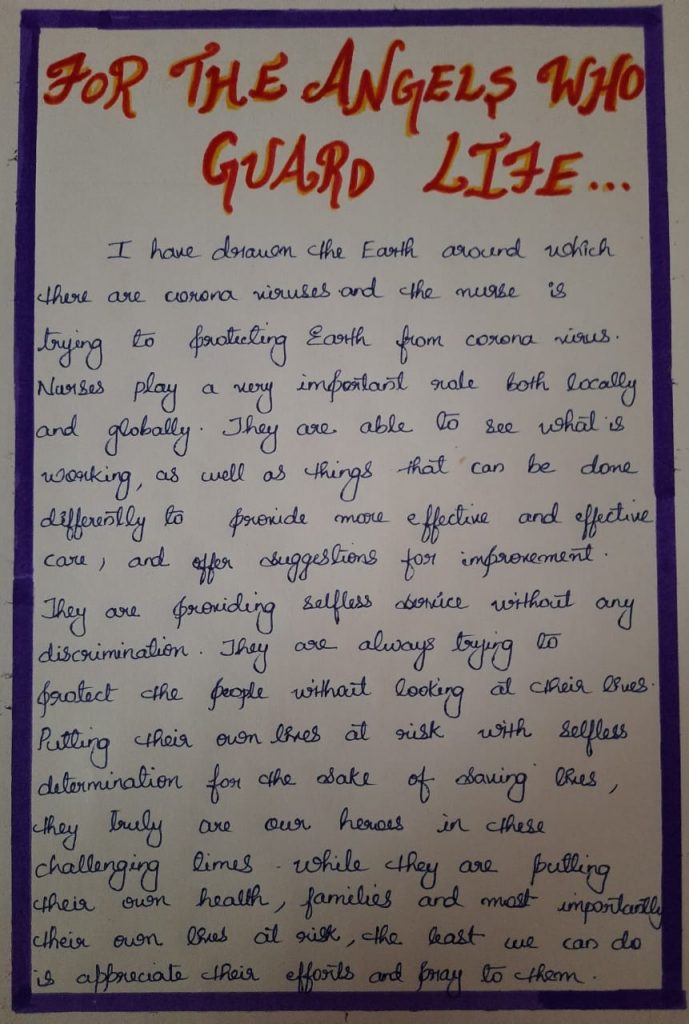 FOR THE ANGELS WHO
GUARD LIFE...
I have drawn the Earth around which
there are corona viruses and the nurse is
trying to protecting Earth from corona virus.
Nurses play a very important role both locally
and globally. They are able to see what is
working, as well as things that can be done
differently to provide more effective and effective
care, and offer suggestions for improvement.
They are providing selfless service without any
discrimination. They are always trying to
protect the people without looking at their lives.
Putting their own lives at risk with selfless
determination for the sake of saving lives,
they truly are our heroes in these
challenging times. while they are putting
their own health, families and most importantly
their own lives at risk, the least we can do
is appreciate their efforts and pray to them.